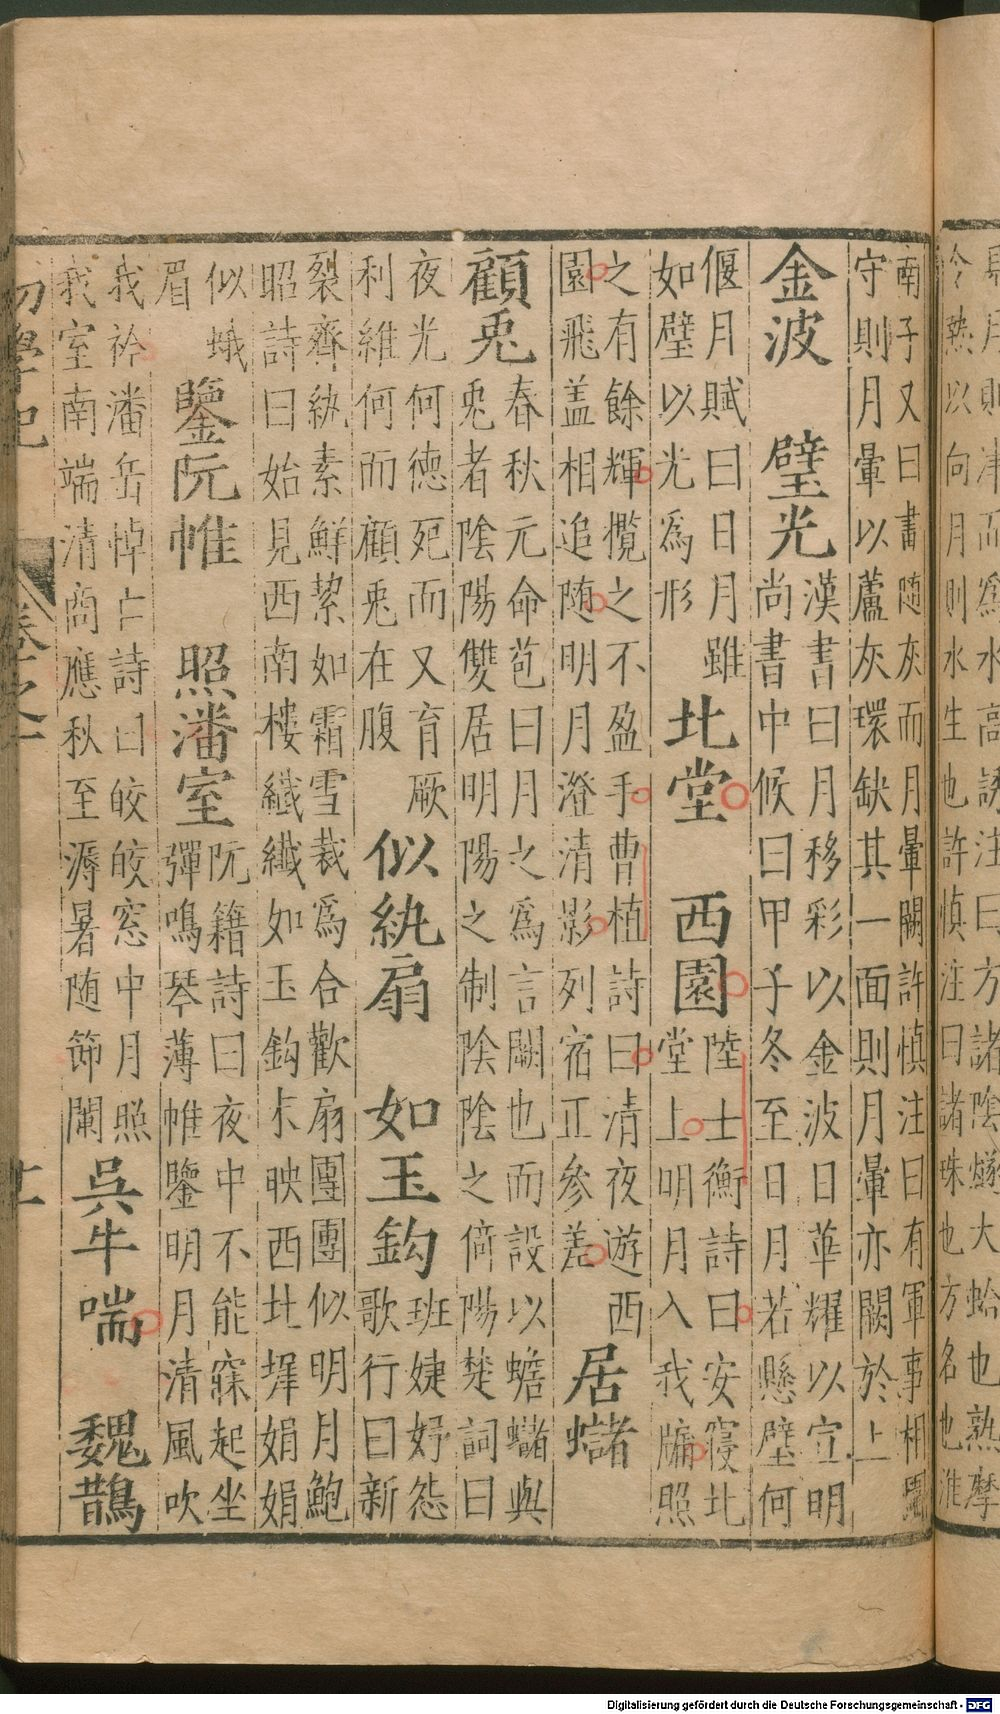 馬月則津而爲水高誘注曰方諸陰燧大蛤也熟摩
令熱以向月則水生也許慎注曰諸珠也方名也淮
南子又曰畫随灰而月暈闕許慎注曰有軍事相圍
守則月暈以蘆灰環缺其一面則月暈亦闕於上
金波 璧光
漢書曰月移彩以金波日華耀以宣明
尚書中候曰甲子冬至日月若懸璧何
偃月賦曰日月雖
如璧以光爲形
北堂 西園
陸士衡詩曰安寢北
堂上明月入我牖照
之有餘輝攬之不盈手曹植詩曰清夜遊西
園飛盖相追随明月澄清影列宿正參差
居蠩
顧兎
春秋元命苞曰月之爲言闕也而設以蟾蠩與
兎者陰陽雙居明陽之制陰陰之倚陽楚詞曰
夜光何德死而又育厥
利維何而顧兎在腹
似紈扇 如玉鈎
班婕妤怨
歌行曰新
裂齊紈素鮮絜如霜雪裁爲合歡扇團團似明月鮑
昭詩曰始見西南樓纖纖如玉鈎末映西北墀娟娟
似蛾
眉
鑒阮帷 照潘室
阮籍詩曰夜中不能寐起坐
彈鳴琴薄帷鑒明月清風吹
我衿潘岳悼亡詩曰皎皎窓中月照
我室南端清商應秋至溽暑随節闌
吳牛喘 魏鵲
初學記 卷之一
Digitalisierung gefördert durch die Deutsche Forschungsgemeinschaft - DFG